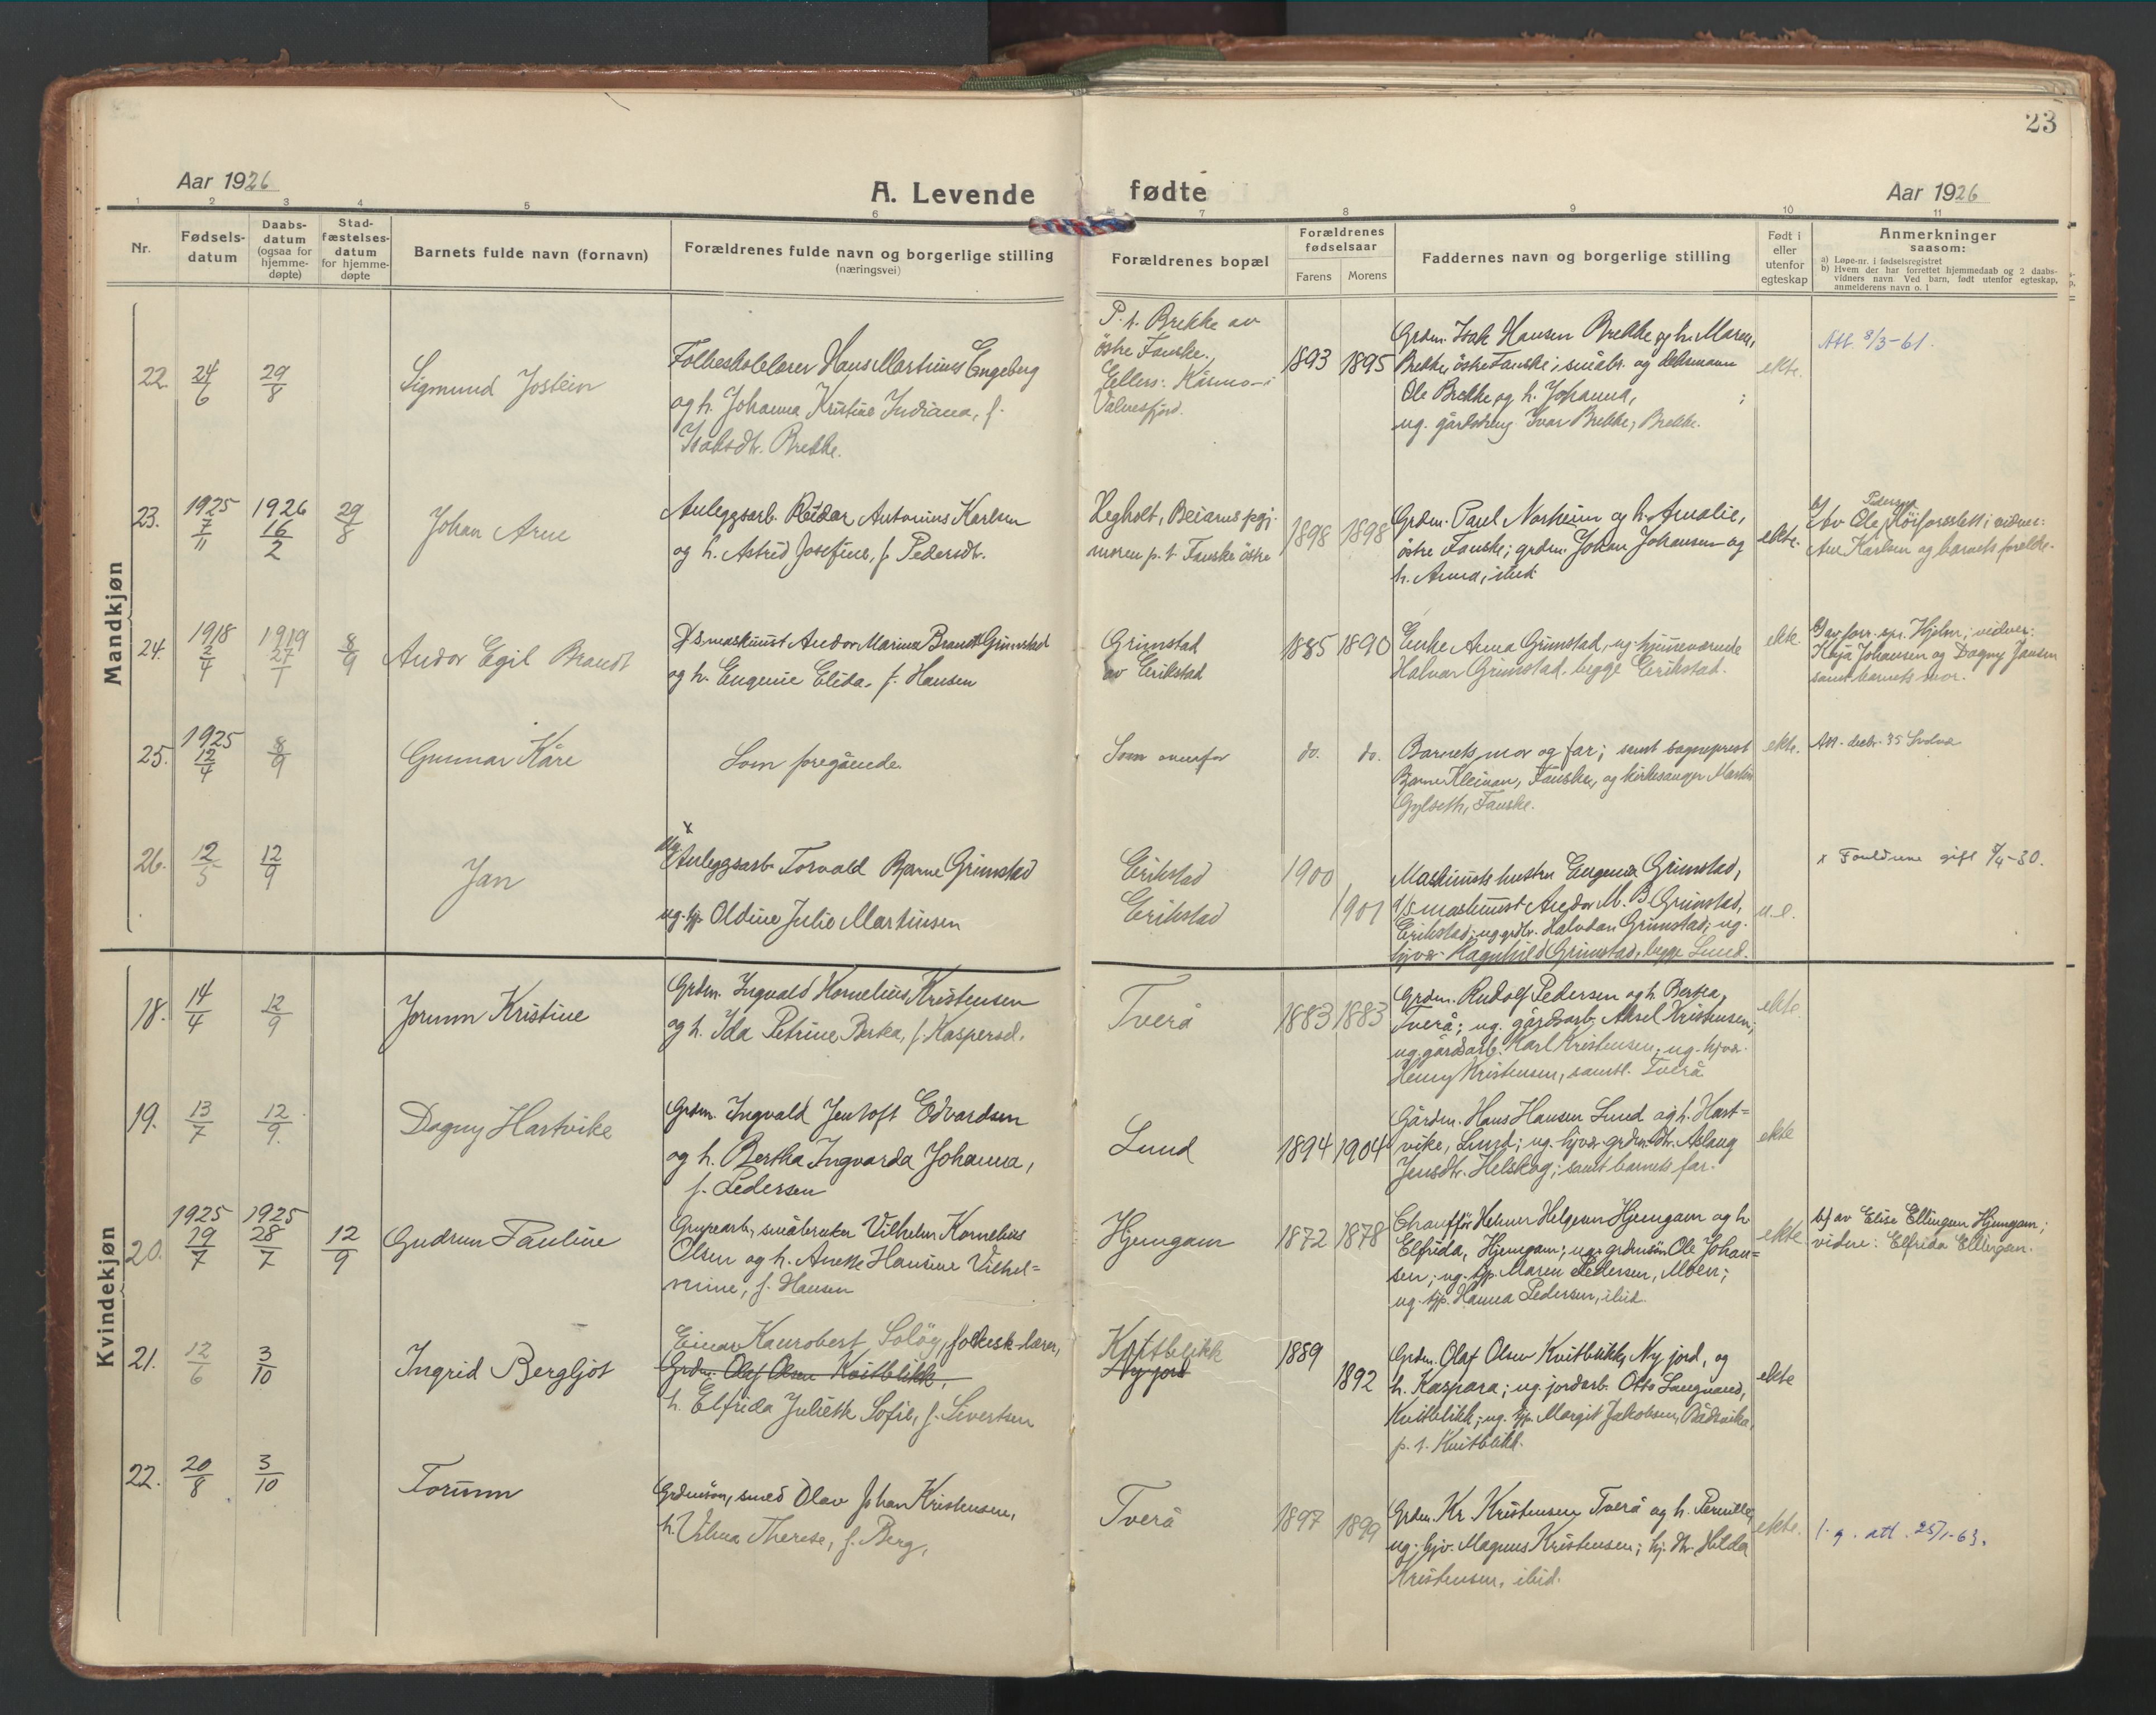 23
Aar 1926
A. Levende fødte
Aar 1926
1 2 3 4 5 6 7 8 9 10 11
Nr.
Fødsels-
datum
Daabs-
datum
(ogsaa for
hjemme-
døpte)
Stad-
fæstelses-
datum
for hjemme-
døpte
Barnets fulde navn (fornavn)
Forældrenes fulde navn og borgerlige stilling
(næringsvei)
Forældrenes bopæl
Forældrenes
fødselsaar
Farens Morens
Faddernes navn og borgerlige stilling
Født i
eller
utenfor
egteskap
Anmerkninger
saasom:
a) Løpe-nr. i fødselsregistret
b) Hvem der har forrettet hjemmedaab og 2 daabs-
vidners navn Ved barn, født utenfor egteskap,
anmelderens navn o. l
Mandkjøn
22. 24/6 29/8
Sigmund Jostein
Folkeskolelærer Hans Martinus Engeberg
og h. Johanna Kristine Indiana, f.
Isaksdtr. Brekke.
P. t. Brekke av
östre Fauske.
Ellers: Kosmo i
Valnesfjord.
1893 1895
Grdm. Isak Hansen Brekke og h. Maren,
Brekke östre Fauske; småbr. og
Ole Brekke og h. Johanna,
ug. gårdsdreng Ivar Brekke, Brekke.
ekte.
Att. 8/3-61.
23. 1925 7/11 1926 16/2 29/8
Johan Arne
Anleggsarb. Reidar Antonius Karlsen
og h. Astrid Josefine, f. Pedersdt.
Hegholt, Beiarns pgj.
moren p. t. Fauske östre
1898 1898
Grdm. Parel Norheim og h. Amalie,
östre Fauske; grdm. Johan Johansen og
h. Anna, ibid.
ekte.
b) Av Ole Pedersen; vidner:
Karlsen og barnets foreldre.
24. 1918 2/4 1919 27/1 8/9
Andor Egil Brandt
D/s maskinist Andor Marinus Brandt Grimstad
og h. Eugenie Elida, f. Hansen
Grimstad
av Erikstad
1885 1890
Enke Anna Grimstad, ug. hjemmeværende
Halvar Grimstad, begge Erikstad.
ekte
b) av forr. spr. Hjelm; vidner:
Kaja Johansen og Dagny Jansen
samt barnets mor.
25. 1925 12/4 8/9
Gunnar Kåre
Som foregående.
Som ovenfor
do. do.
Barnets mor og far; samt sogneprest
Bjarne Kleivan, Fauske, og kirkesanger Martin
Gylseth, Fauske.
ekte.
Att. decbr. 35
26. 12/5 12/9
Jan
x
Ug. Anleggsarb Torvald Bjarne Grimstad
ug. tjp. Oldine Julie Martinsen
Erikstad
Erikstad
1900
1901
Maskinists hustru Eugenia Grimstad,
D/S maskinist Andor M. B. Grimstad,
Erikstad; ug. grdbr. Halvdan Grimstad; ug.
hjvær. Ragnhild Grimstad, begge Lund.
u. e.
x Foreldrene gift 7/4-30.
Kvindekjøn
18. 14/4 12/9
Jorunn Kristine
Grdm. Ingvald Kornelius Kristensen
og h. Ida Petrine Berka, f. Kaspersd.
Tverå
1883 1883
Grdm. Rudolf Pedersen og h. Bertea,
Tverå; ug. gårdsarb. Aksel Kristensen;
ug. gårdsarb. Karl Kristensen, ug. hjvær.
Henny Kristensen, samtl. Tverå
ekte.
19. 13/7 12/9.
Dagny Hartvike
Grdm. Ingvald Jentoft Edvardsen
og h. Bertha Ingvarda Johanna,
f. Pedersen
Lund
1894 1904
Gårdm. Hans Hansen Lund og h. Hart=
vike, Lund; ug. hjvær. grdm.dtr. Aslaug
Jensdtr. Helskog; samt barnets far.
ekte
20. 1925 19/7 1925 28/7 12/9
Gudrun Pauline
Grupearb., småbruker Vilhelm Kornelius
Olsen og h. Anette Hansine Vilhel=
mine, f. Hansen
Hjemgam
1872 1878
Chauffør Helmer Helgesen Hjemgam og h.
Elfrida, Hjemgam; ug. grdmsön Ole Johan=
sen; ug. tjp. Maren Pedersen, Moen;
ug. tjp. Hanna Pedersen, ibid.
ekte
b) av Elise Ellingsen Hjemgam;
vidne: Elfrida Ellingsen.
21. 12/6 3/10
Ingrid Bergljot
Einar Kanrobert Solög, folkesk.lærer,
Grdm. Olaf Olsen Kvitblikk,
h. Elfrida Juliette Sofie, f. Sivertsen
Kvitblikk
Ny jord
1889
1892
Grdm. Olaf Olsen Kvitblikk, Ny jord, og
h. Kaspara; ug. jordarb. Otto Langvand,
Kvitblikk; ug. tjp. Margit Jakobsen, Bådsvika,
p. t. Kvitblikk.
ekte
22. 20/8 3/10
Torunn
Grdmsön, smed Olav Johan Kristensen,
h. Vilma Therese, f. Berg,
Tverå
1897 1899
Grdm. Kr. Kristensen Tverå og h. Pernille;
ug. hjv. Magnus Kristensen; hj. dtr. Hilda
Kristensen, ibid.
ekte.
l. g. att. 25/1-63.